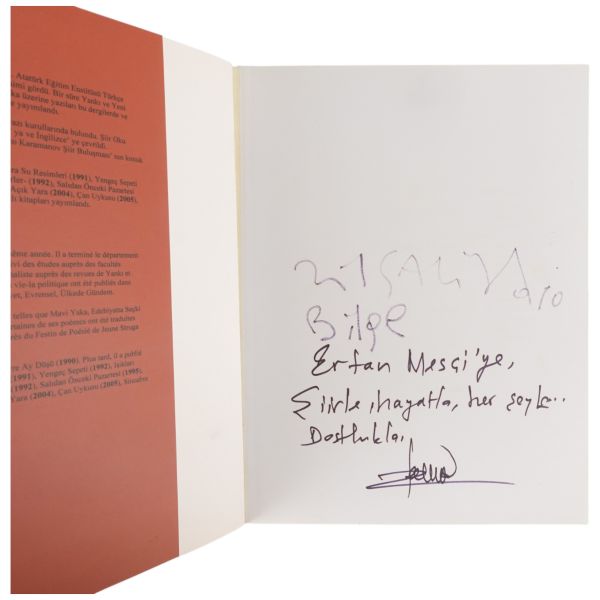 Atatürk Eğitim Enstitüsü Türkçe
gördü. Bir süre Yankı ve Yeni
üzerine yazıları bu dergilerde ve
yayımlandı.
kurullarında bulundu. Şiir Oku
ya ve İngilizce' ye çevrildi.
Karamanov Şiir Buluşması' nın konuk
Su Resimleri (1991), Yengeç Sepeti
(1992), Salıdan Önceki Pazartesi
Açık Yara (2004), Çan Uykusu (2005),
kitapları yayımlandı.
année. Il a terminé le département
des études auprès des facultés
auprès des revues de Yankı et
vie-la politique ont été publiés dans
Evrensel, Ülkede Gündem.
telles que Mavi Yaka, Edebiyatta Seçki
de ses poèmes ont été traduites
du Festin de Poésié de Jeune Struga
Ay Düşü (1990). Plus tard, il a publié
(1991), Yengeç Sepeti (1992), Işıkları
(1992), Salıdan Önceki Pazartesi (1995),
Yara (2004), Çan Uykusu (2005),
Bilge
Erfan Mesçi'ye,
Şiirle, hayatla, her şeyle..
Dostlukla,